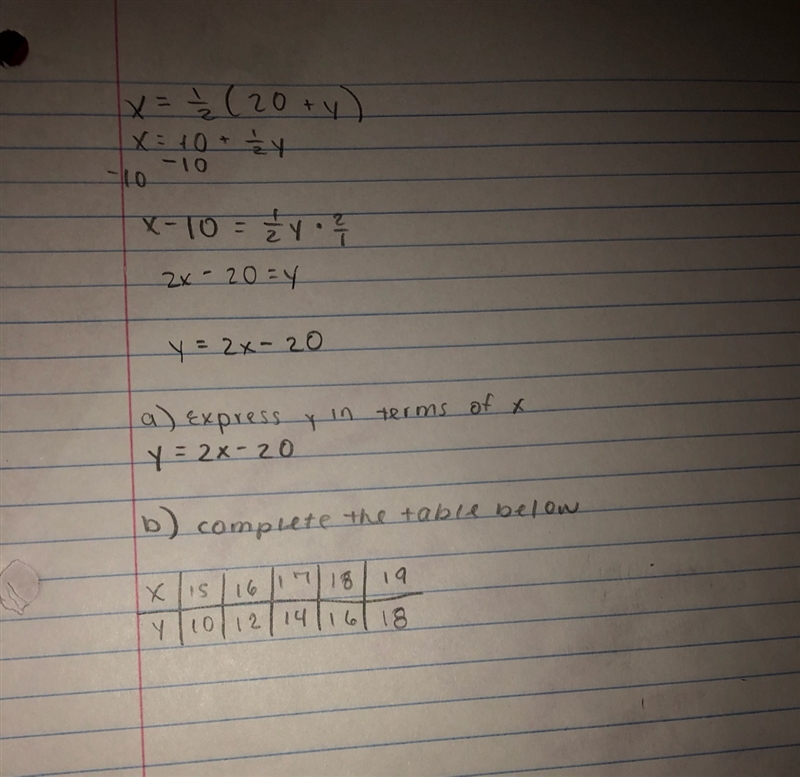 x = 1/2 (20 + y)
x = 10 + 1/2 y
-10 -10
x - 10 = 1/2 y · 2/1
2x - 20 = y
y = 2x - 20
a) express y in terms of x
y = 2x - 20
b) complete the table below
X | 15 | 16 | 17 | 18 | 19
Y | 10 | 12 | 14 | 16 | 18